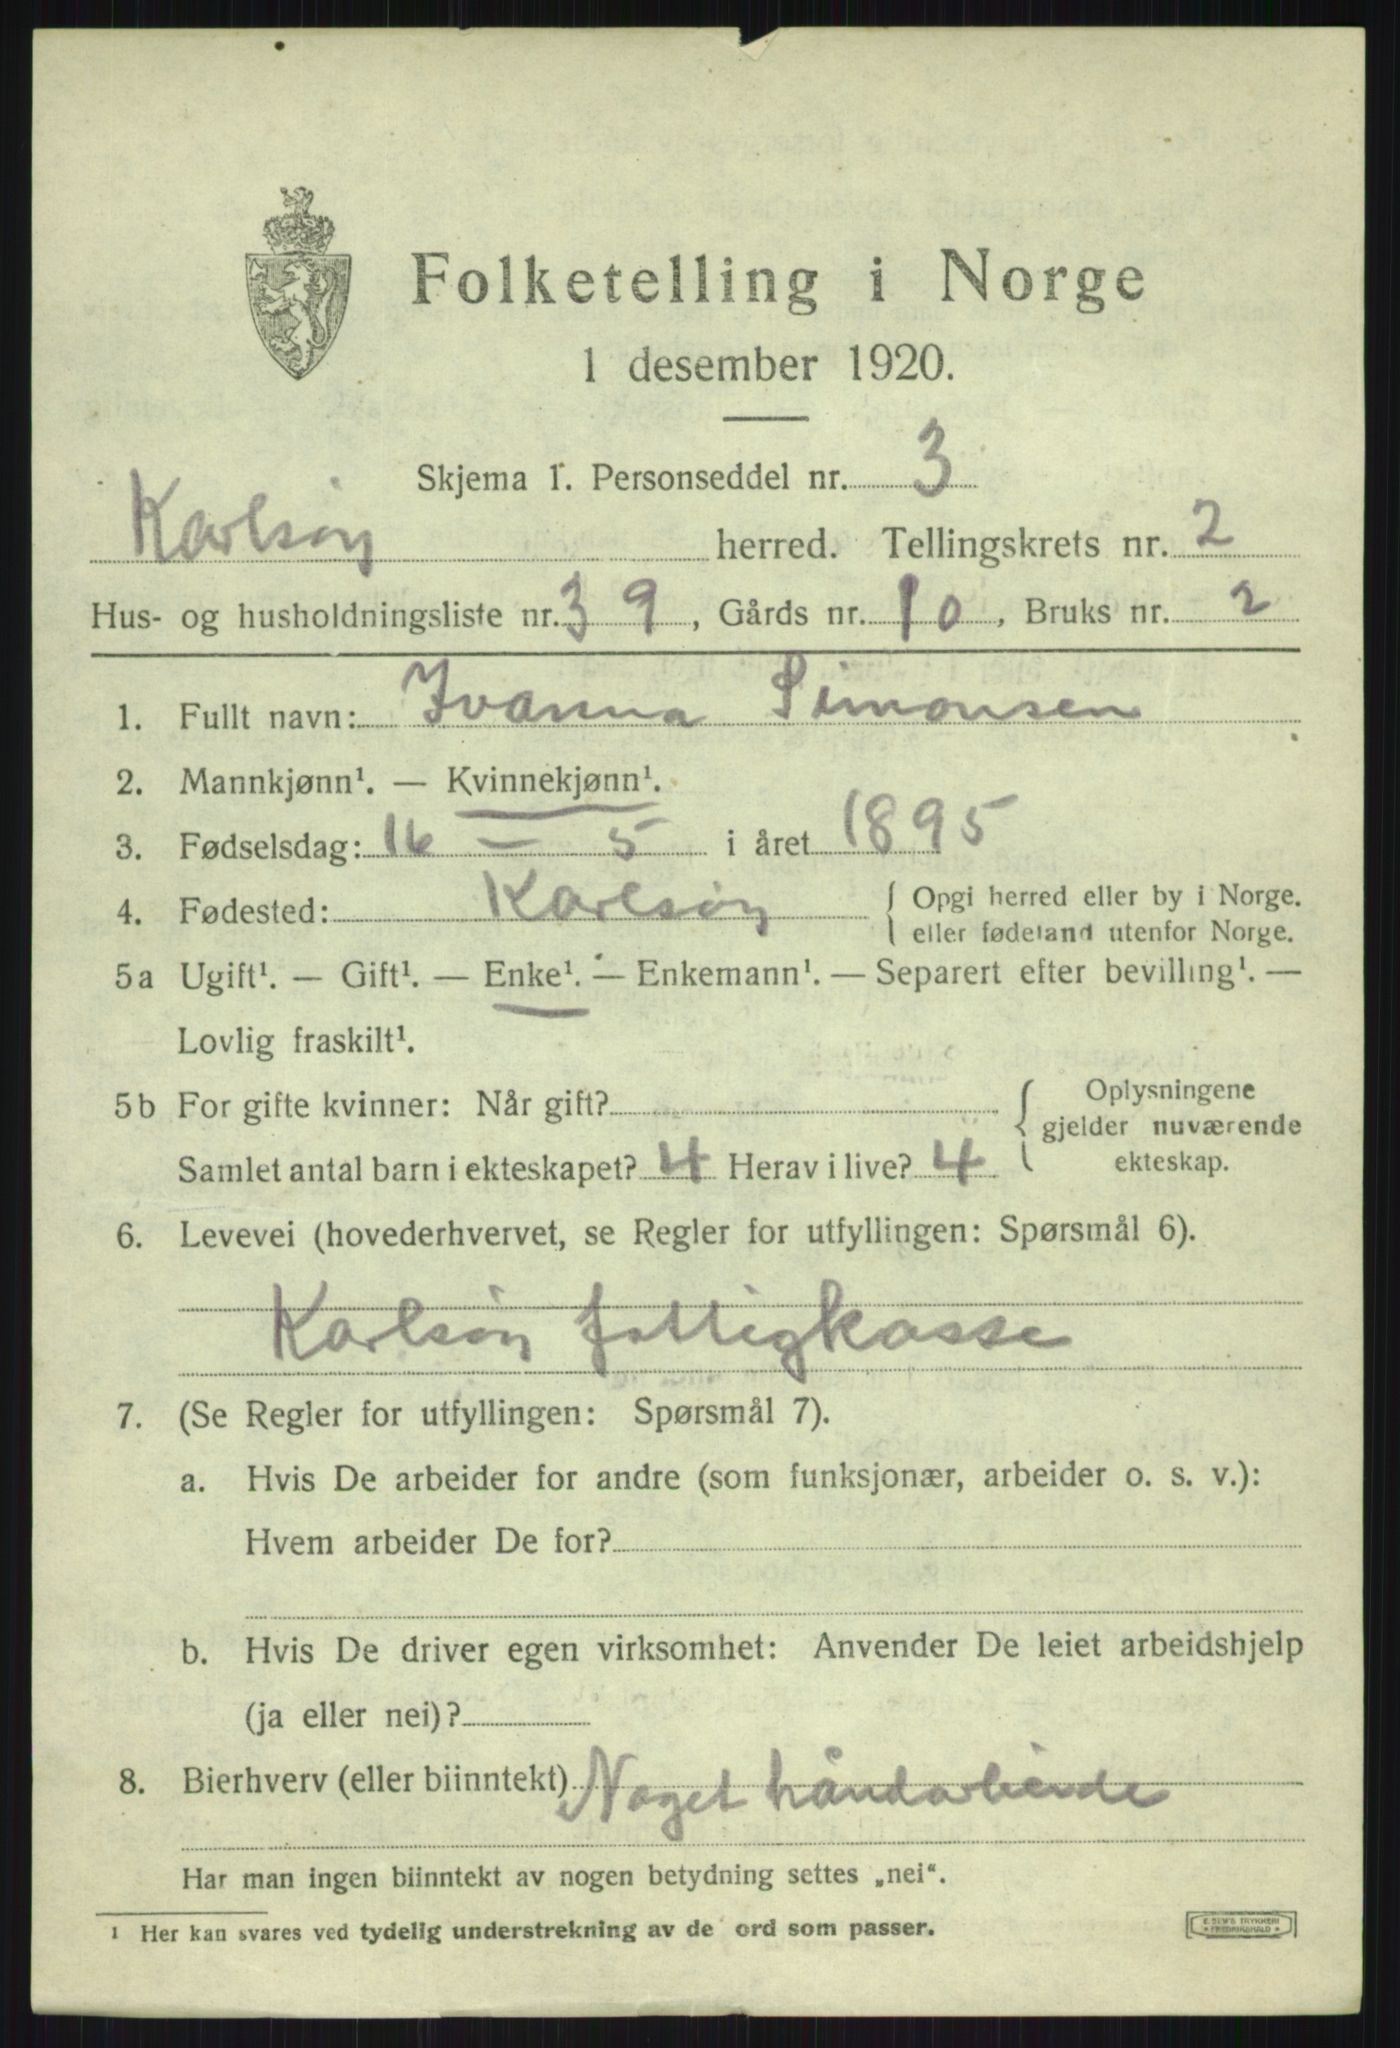 Folketelling i Norge
1 desember 1920.
Skjema 1. Personseddel nr. 3
Karlsøy herred. Tellingskrets nr. 2
Hus- og husholdningsliste nr. 39, Gårds nr. 10, Bruks nr. 2
1. Fullt navn: Ivanna Simonsen
2. Mannkjønn¹. — Kvinnekjønn¹.
3. Fødselsdag: 16 – 5 i året 1895
4. Fødested: Karlsøy { Opgi herred eller by i Norge.
eller fødeland utenfor Norge.
5a Ugift¹. — Gift¹. — Enke¹. — Enkemann¹. — Separert efter bevilling¹. —
Lovlig fraskilt¹.
5b For gifte kvinner: Når gift?
Samlet antal barn i ekteskapet? 4 Herav i live? 4
{ Oplysningene
gjelder nuværende
ekteskap.
6. Levevei (hovederhvervet, se Regler for utfyllingen: Spørsmål 6).
Karlsøy fattigkasse
7. (Se Regler for utfyllingen: Spørsmål 7).
a. Hvis De arbeider for andre (som funksjonær, arbeider o. s. v.):
Hvem arbeider De for?
b. Hvis De driver egen virksomhet: Anvender De leiet arbeidshjelp
(ja eller nei)?
8. Bierhverv (eller biinntekt) Noget håndarbeide
Har man ingen biinntekt av nogen betydning settes „nei“.
¹ Her kan svares ved tydelig understrekning av de ord som passer.
E. SEM'S TRYKKERI
FREDRIKSHALD